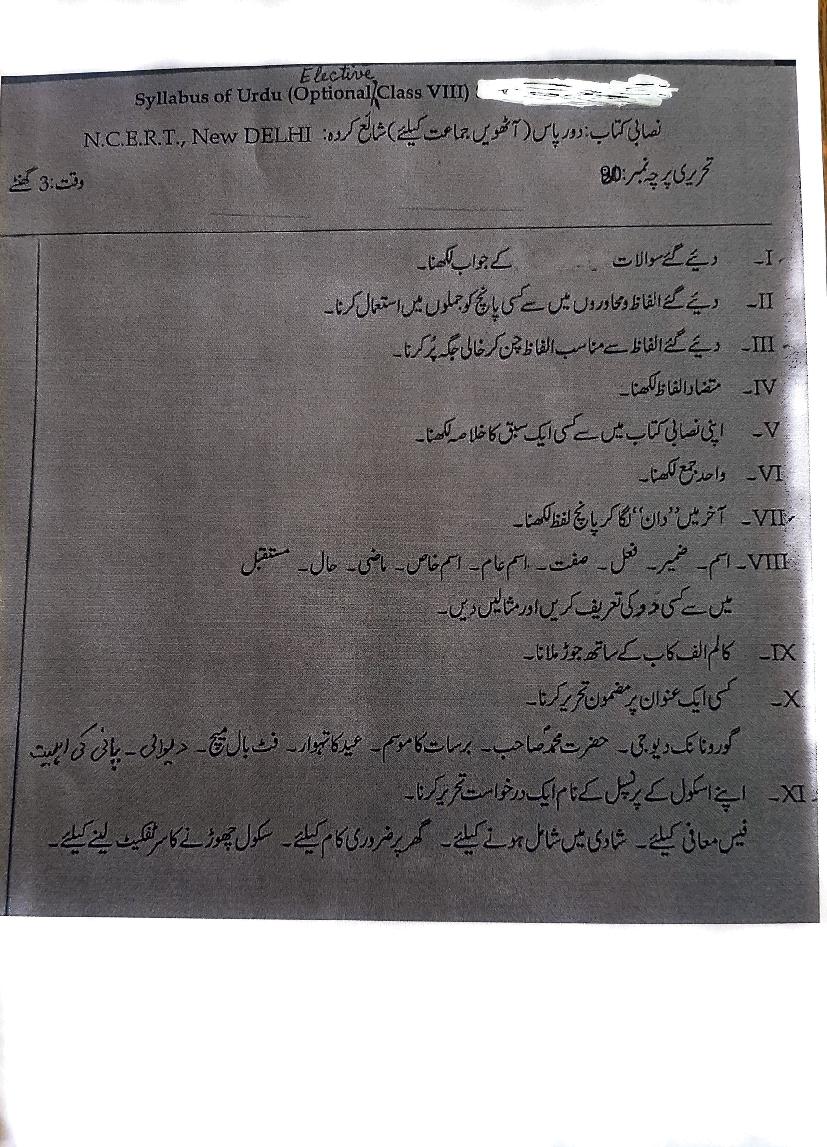 Elective
Syllabus of Urdu (Optional Class VIII)
نصابی کتاب: دور پاس (آٹھویں جماعت کیلئے) شائع کردہ: N.C.E.R.T., New DELHI
تحریری پرچہ نمبر: 80 وقت: 3 گھنٹے
I۔ دیئے گئے سوالات کے جواب لکھنا۔
II۔ دیئے گئے الفاظ ومحاوروں میں سے کسی پانچ کو جملوں میں استعمال کرنا۔
III۔ دیئے گئے الفاظ سے مناسب الفاظ چن کر خالی جگہ پُر کرنا۔
IV۔ متضاد الفاظ لکھنا۔
V۔ اپنی نصابی کتاب میں سے کسی ایک سبق کا خلاصہ لکھنا۔
VI۔ واحد جمع لکھنا۔
VII۔ آخر میں ’’دان‘‘ لگا کر پانچ لفظ لکھنا۔
VIII۔ اسم۔ ضمیر۔ فعل۔ صفت۔ اسم عام۔ اسم خاص۔ ماضی۔ حال۔ مستقبل
میں سے کسی دو کی تعریف کریں اور مثالیں دیں۔
IX۔ کالم الف کا ب کے ساتھ جوڑ ملانا۔
X۔ کسی ایک عنوان پر مضمون تحریر کرنا۔
گورو نانک دیو جی۔ حضرت محمدؐ صاحب۔ برسات کا موسم۔ عید کا تہوار۔ فٹ بال میچ۔ دیوالی۔ پانی کی اہمیت
XI۔ اپنے اسکول کے پرنسپل کے نام ایک درخواست تحریر کرنا۔
فیس معافی کیلئے۔ شادی میں شامل ہونے کیلئے۔ گھر پر ضروری کام کیلئے۔ سکول چھوڑنے کا سرٹفکیٹ لینے کیلئے۔